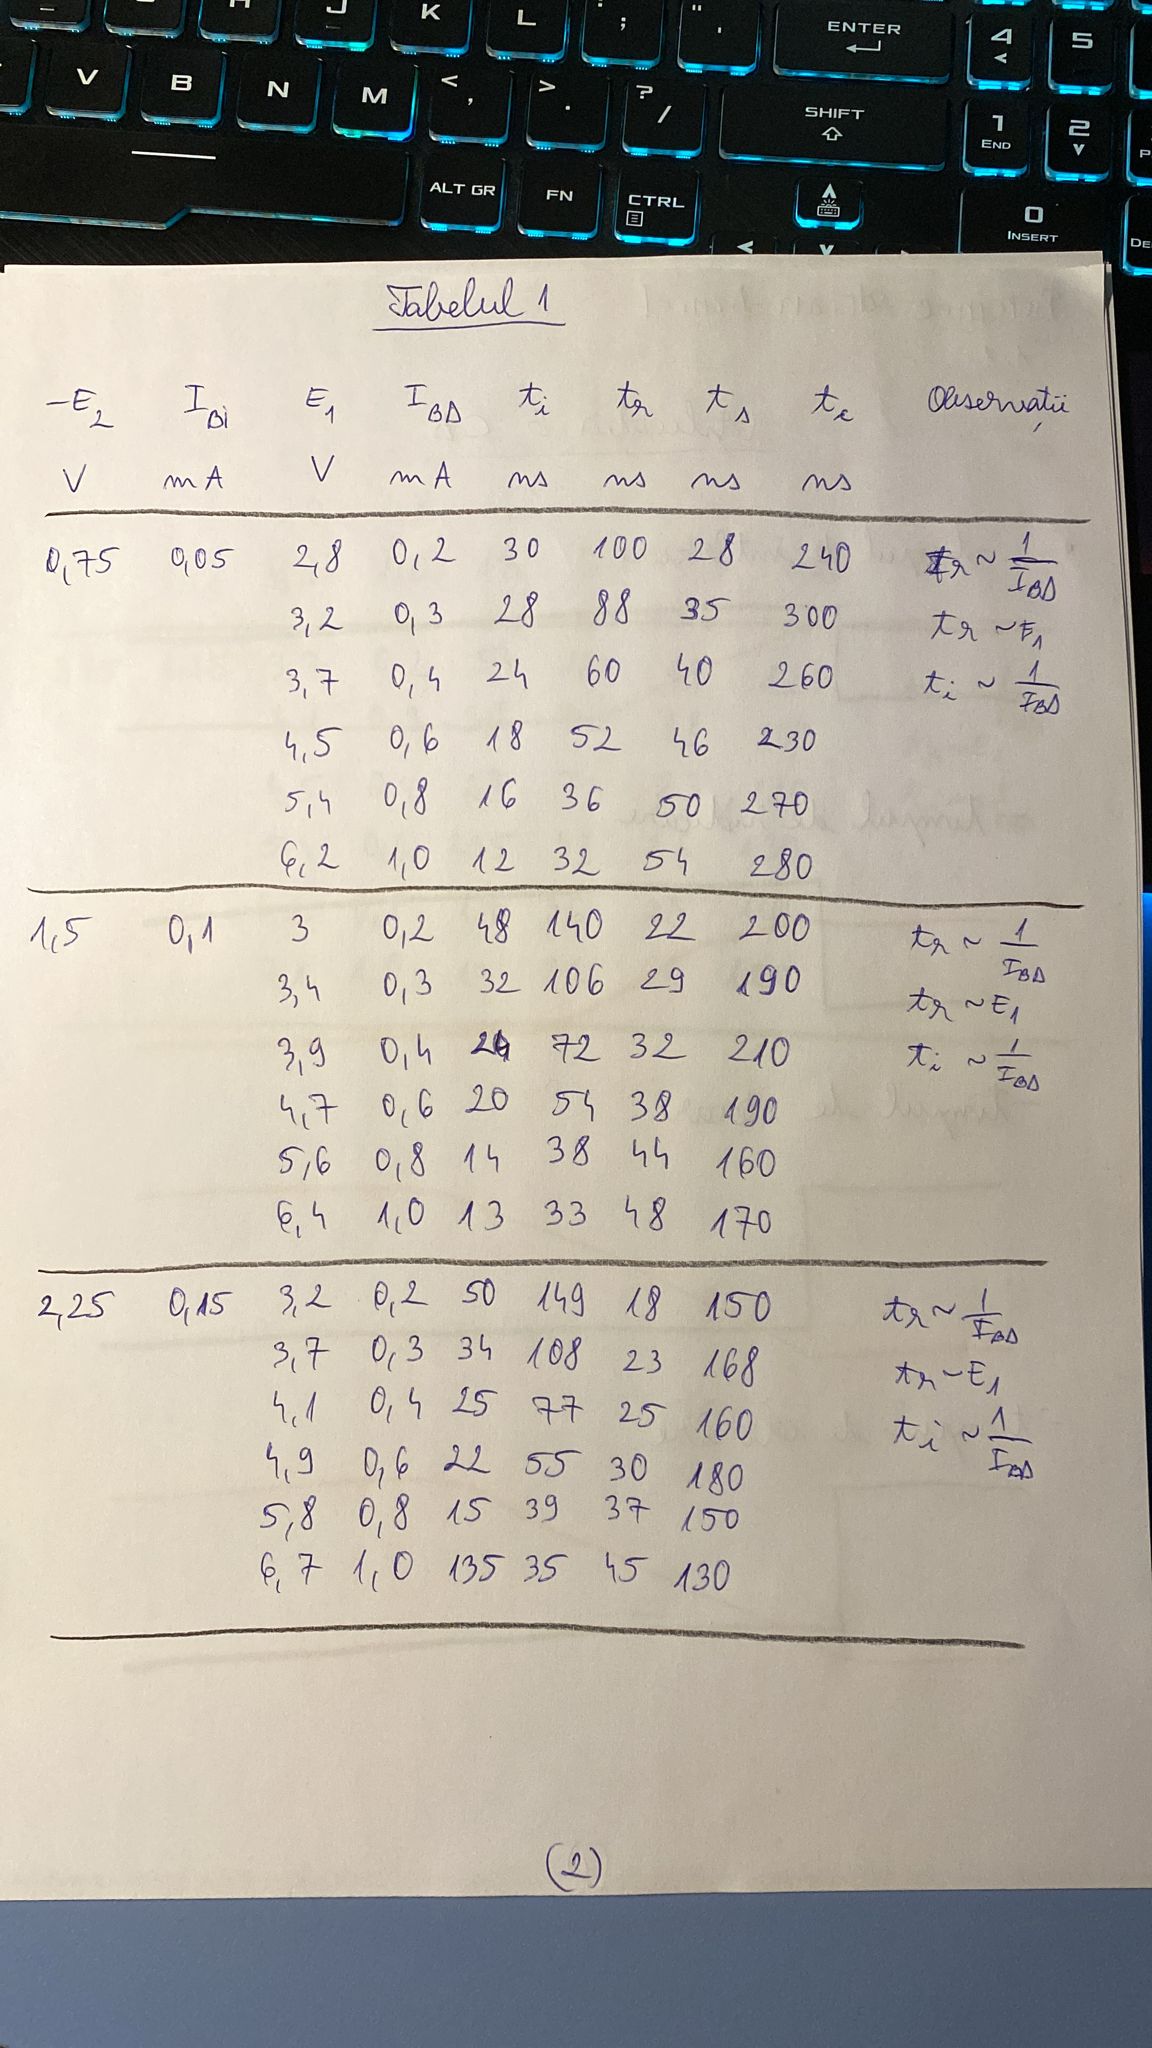 H J K L : ; " ' ENTER 4 5
V B N M < , > . ? / SHIFT 1 END 2
ALT GR FN CTRL 0 INSERT
Tabelul 1
-E2 IBi E1 IBD ti tr ts tc Observații
V mA V mA ns ns ns ns
0,75 0,05 2,8 0,2 30 100 28 240 tr ~ 1/IBD
3,2 0,3 28 88 35 300 tr ~ E1
3,7 0,4 24 60 40 260 ti ~ 1/IBD
4,5 0,6 18 52 46 230
5,4 0,8 16 36 50 270
6,2 1,0 12 32 54 280
1,5 0,1 3 0,2 48 140 22 200 tr ~ 1/IBD
3,4 0,3 32 106 29 190 tr ~ E1
3,9 0,4 24 72 32 210 ti ~ 1/IBD
4,7 0,6 20 54 38 190
5,6 0,8 14 38 44 160
6,4 1,0 13 33 48 170
2,25 0,15 3,2 0,2 50 149 18 150 tr ~ 1/IBD
3,7 0,3 34 108 23 168 tr ~ E1
4,1 0,4 25 77 25 160 ti ~ 1/IBD
4,9 0,6 22 55 30 180
5,8 0,8 15 39 37 150
6,7 1,0 135 35 45 130
(2)